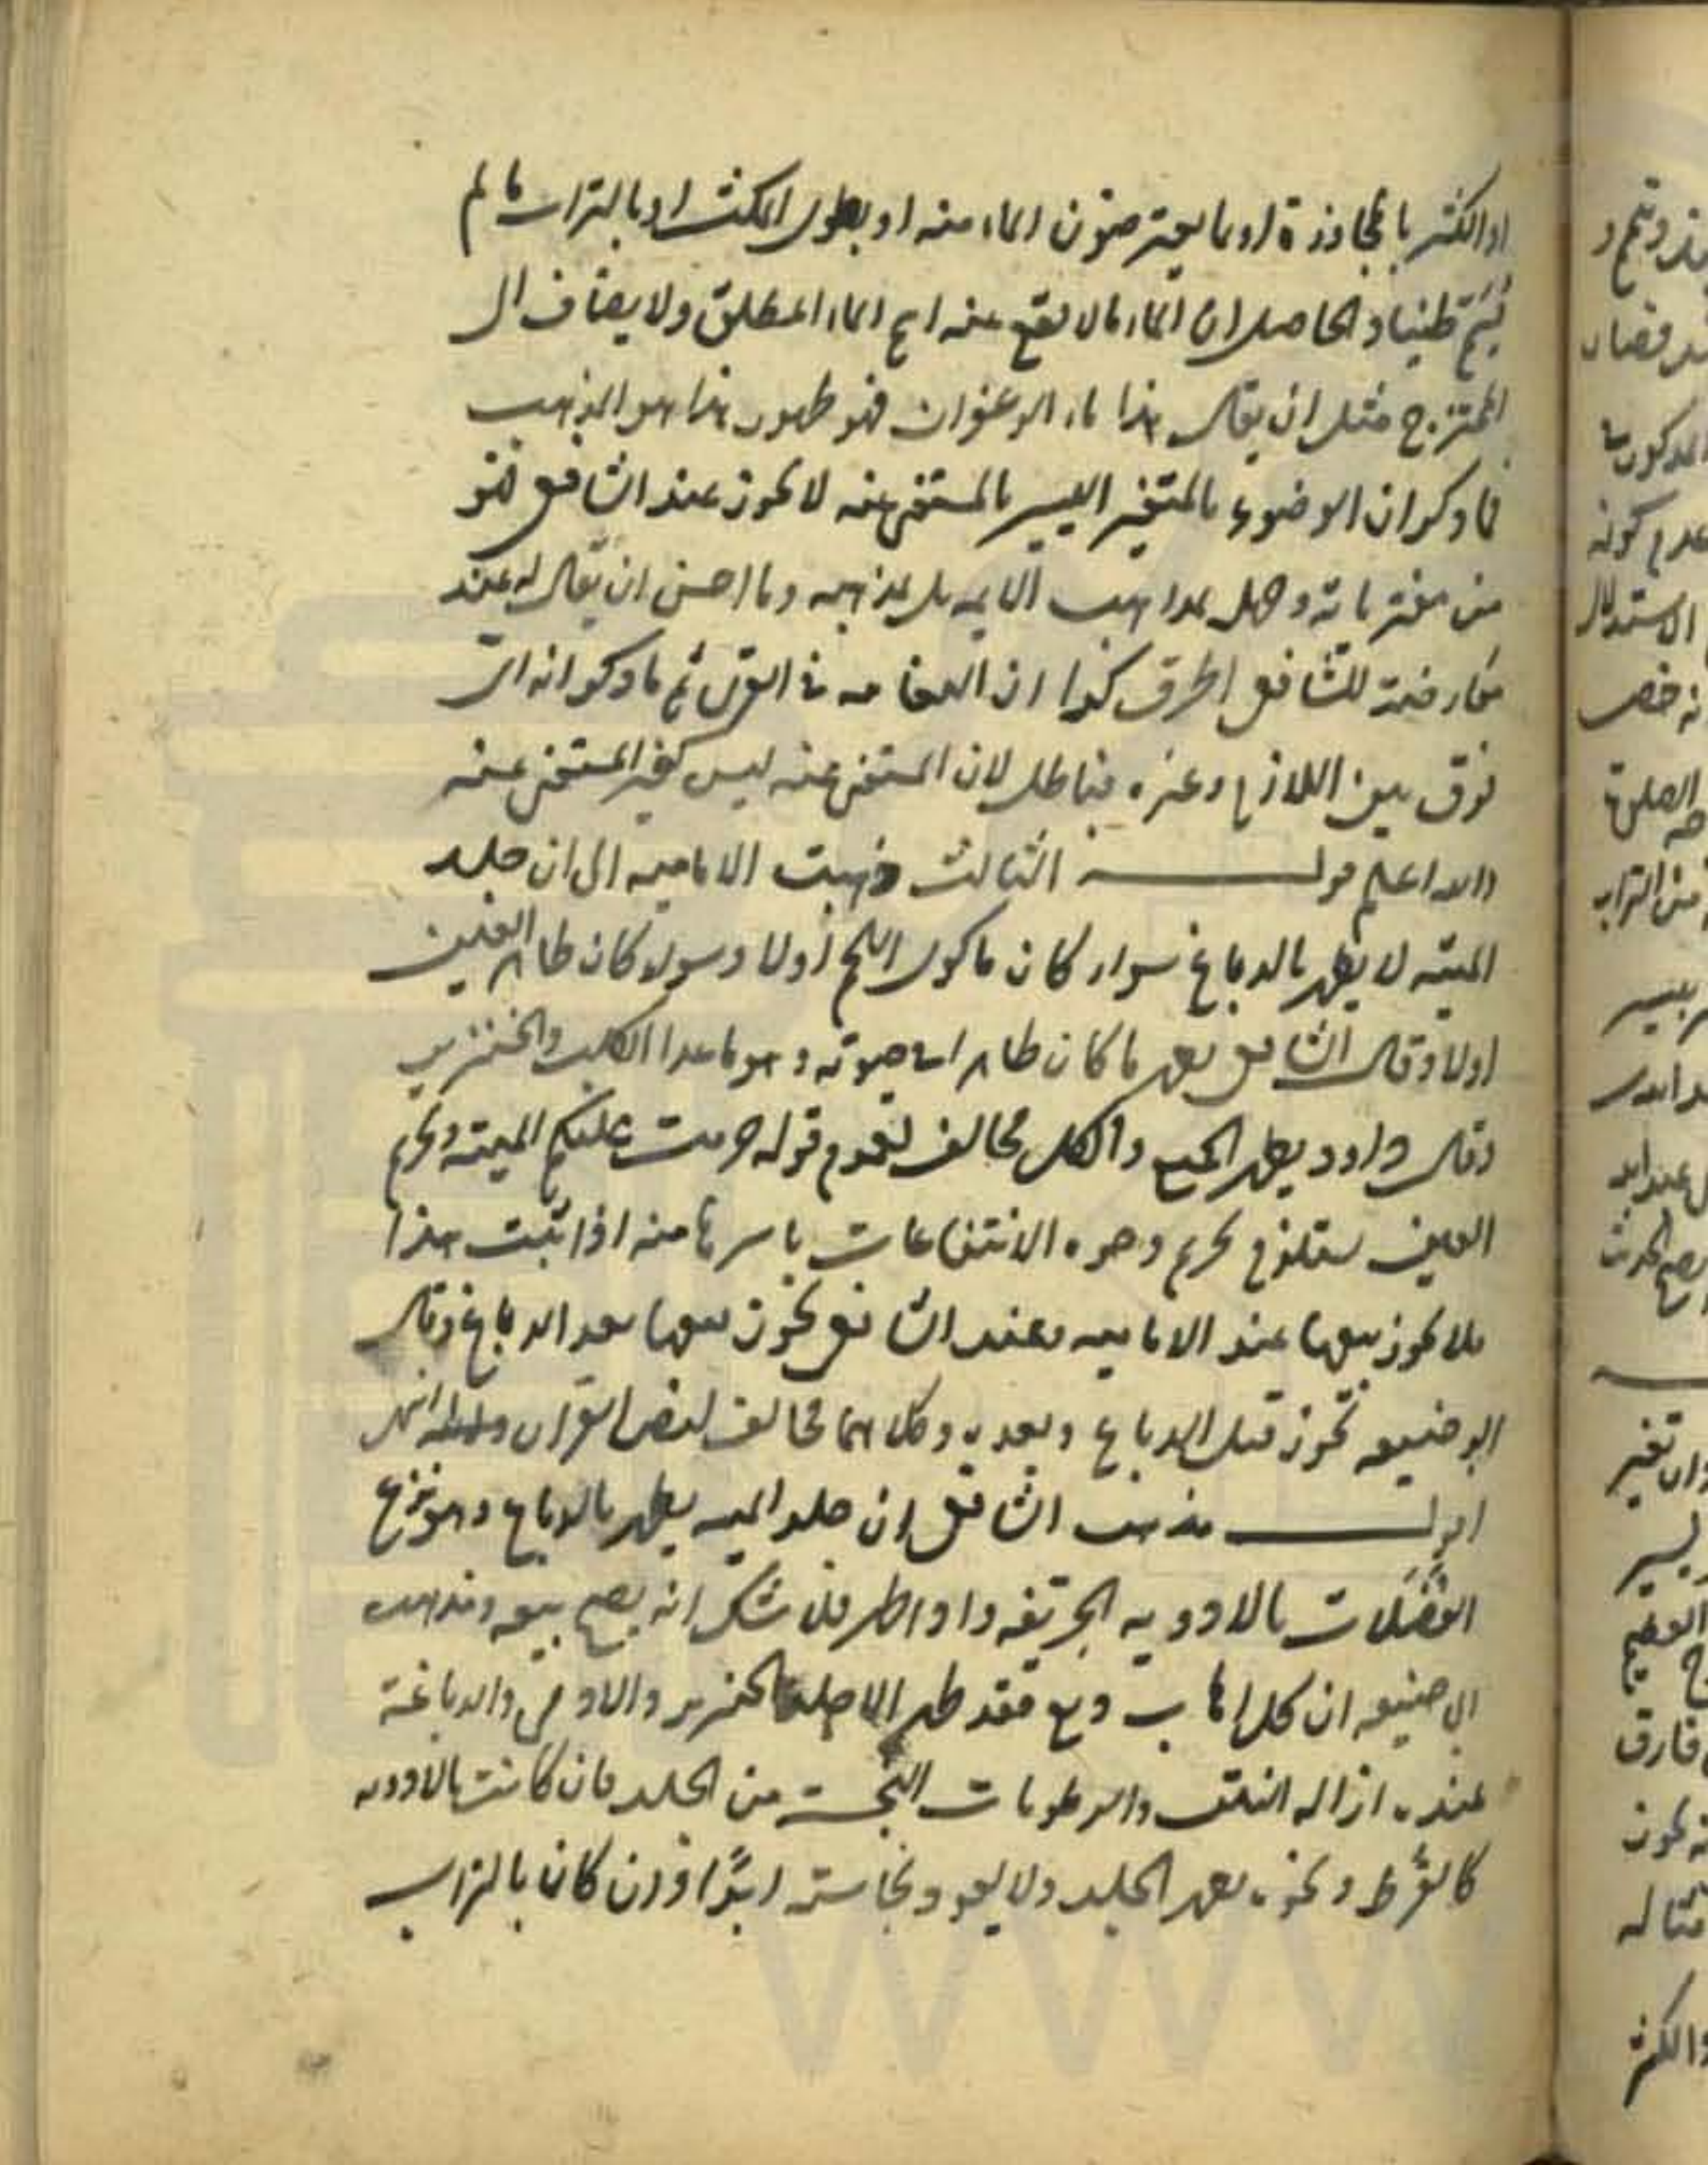 او الكثير بالمجاورة او بما يعتبر صون الماء منه او بطول المكث او بالتراب ما لم
يسم طينا والحاصل ان الماء ما لا يقع عنه اسم الماء المطلق ولا يضاف الى
الممتزج مثل ان يقال هذا ماء الزعفران فهو طهور هذا هو المذهب
فما ذكر ان الوضوء بالمتغير اليسير بالمستغنى عنه لا يجوز عند الشافعي فهو
من مفترياته وجهل بمذاهب الائمه بل بمذهبه وما احسن ان يقال له عند
معارضة للشافعي اطرق كرا ان النعامه في القرى ثم ما ذكر انه اى
فرق بين اللازم وغيره فباطل لان المستغنى عنه ليس كغير المستغنى عنه
والله اعلم قوله الثالث ذهبت الاماميه الى ان جلد
الميته لا يطهر بالدباغ سواء كان ماكول اللحم اولا وسواء كان طاهر العين
اولا وقال الشافعي يطهر ما كان طاهرا في حيوته وهو ما عدا الكلب والخنزير
وقال داود يطهر الجميع والكل مخالف لعموم قوله حرمت عليكم الميته وتحريم
العين يستلزم تحريم وجوه الانتفاعات باسرها منه اذا ثبت هذا
فلا يجوز بيعها عند الاماميه وعند الشافعي يجوز بيعها بعد الدباغ وقال
ابو حنيفه يجوز قبل الدباغ وبعده وكلاهما مخالف لنص القران انتهى
اقول مذهب الشافعي ان جلد الميته يطهر بالدباغ وهو نزع
الفضلات بالادويه الحريفه واذا طهر فلا شك انه يصح بيعه ومذهب
ابي حنيفه ان كل اهاب دبغ فقد طهر الا جلد الخنزير والادمي والدباغة
عنده ازاله النتن والرطوبات النجسة من الجلد فان كانت بالادويه
كالقرظ ونحوه يطهر الجلد ولا يعود نجاسته ابدًا وان كان بالتراب